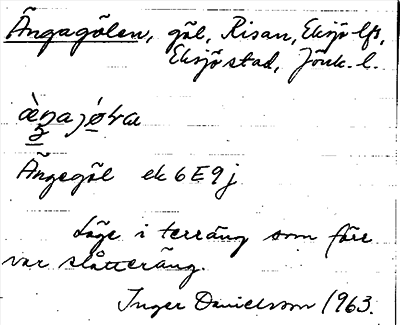 Ängagölen, göl, Risan, Eksjö lfs,
Eksjö stad, Jönk. l.
Ängegöl ek 6E9j
Läge i terräng som förr
var slåtteräng.
Inger Danielsson 1963.